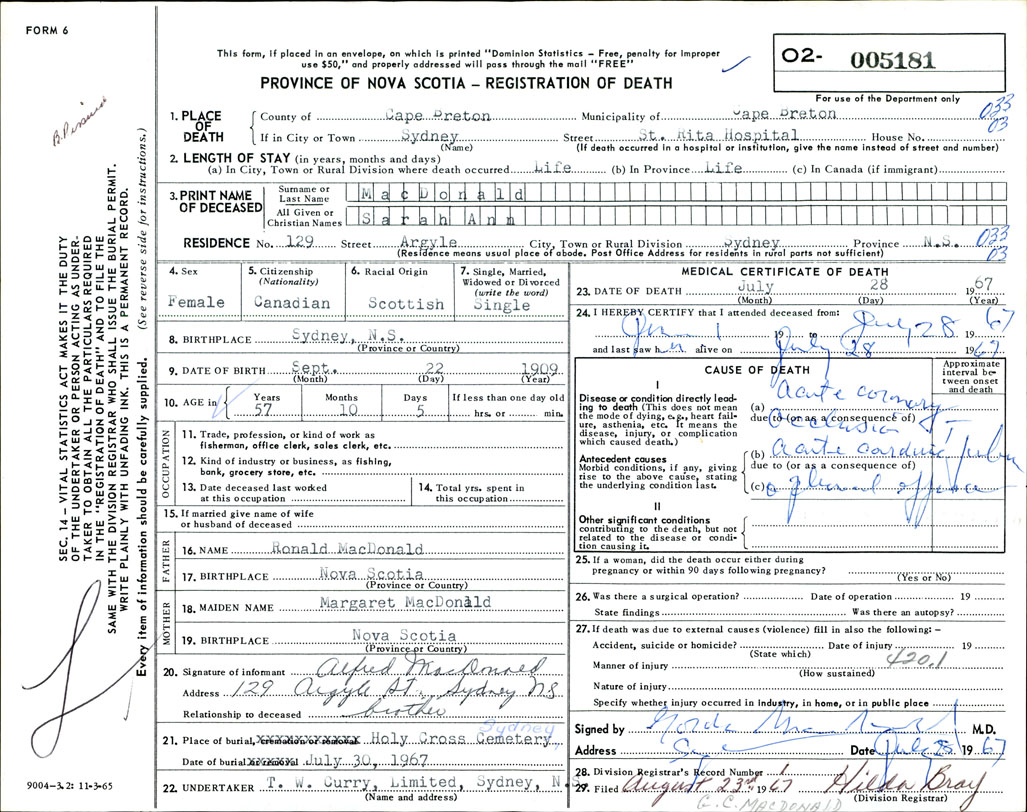 FORM 6
This form, if placed in an envelope, on which is printed "Dominion Statistics – Free, penalty for improper
use $50," and properly addressed will pass through the mail "FREE"
PROVINCE OF NOVA SCOTIA – REGISTRATION OF DEATH
O2- 005181
For use of the Department only
SEC. 14 – VITAL STATISTICS ACT MAKES IT THE DUTY
OF THE UNDERTAKER OR PERSON ACTING AS UNDER-
TAKER TO OBTAIN ALL THE PARTICULARS REQUIRED
IN THE "REGISTRATION OF DEATH" AND TO FILE THE
SAME WITH THE DIVISION REGISTRAR WHO SHALL ISSUE THE BURIAL PERMIT.
WRITE PLAINLY WITH UNFADING INK. THIS IS A PERMANENT RECORD.
Every item of information should be carefully supplied. (See reverse side for instructions.)
9004-3.2: 11-3-65
1. PLACE OF DEATH
County of Cape Breton Municipality of Cape Breton 033
If in City or Town Sydney Street St. Rita Hospital House No. 03
(Name) (If death occurred in a hospital or institution, give the name instead of street and number)
2. LENGTH OF STAY (in years, months and days)
(a) In City, Town or Rural Division where death occurred Life (b) In Province Life (c) In Canada (if immigrant)
3. PRINT NAME OF DECEASED
Surname or Last Name MacDonald
All Given or Christian Names Sarah Ann
RESIDENCE No. 129 Street Argyle City, Town or Rural Division Sydney Province N.S. 033
(Residence means usual place of abode. Post Office Address for residents in rural parts not sufficient) 03
4. Sex Female
5. Citizenship (Nationality) Canadian
6. Racial Origin Scottish
7. Single, Married, Widowed or Divorced (write the word) Single
8. BIRTHPLACE Sydney, N.S.
(Province or Country)
9. DATE OF BIRTH Sept. 22 1909
(Month) (Day) (Year)
10. AGE in Years 57 Months 10 Days 5 If less than one day old hrs. or min.
OCCUPATION
11. Trade, profession, or kind of work as
fisherman, office clerk, sales clerk, etc.
12. Kind of industry or business, as fishing,
bank, grocery store, etc.
13. Date deceased last worked
at this occupation
14. Total yrs. spent in
this occupation
15. If married give name of wife
or husband of deceased
FATHER
16. NAME Ronald MacDonald
17. BIRTHPLACE Nova Scotia
(Province or Country)
MOTHER
18. MAIDEN NAME Margaret MacDonald
19. BIRTHPLACE Nova Scotia
(Province or Country)
20. Signature of informant Alfred MacDonald
Address 129 Argyle St., Sydney NS
Relationship to deceased brother
21. Place of burial, cremation or removal Holy Cross Cemetery Sydney
Date of burial or removal July 30, 1967
22. UNDERTAKER T. W. Curry, Limited, Sydney, N.S
(Name and address)
MEDICAL CERTIFICATE OF DEATH
23. DATE OF DEATH July 28 1967
(Month) (Day) (Year)
24. I HEREBY CERTIFY that I attended deceased from:
1 19 to July 28 1967
and last saw h er alive on July 28 1967
CAUSE OF DEATH
Approximate interval between onset and death
I
Disease or condition directly leading to death (This does not mean the mode of dying, e.g., heart failure, asthenia, etc. It means the disease, injury, or complication which caused death.)
(a) Acute coronary
due to (or as a consequence of) occlusion
Antecedent causes
Morbid conditions, if any, giving rise to the above cause, stating the underlying condition last.
(b) Acute cardiac
due to (or as a consequence of)
(c) pleural
II
Other significant conditions
contributing to the death, but not related to the disease or condition causing it.
25. If a woman, did the death occur either during
pregnancy or within 90 days following pregnancy?
(Yes or No)
26. Was there a surgical operation? Date of operation 19
State findings Was there an autopsy?
27. If death was due to external causes (violence) fill in also the following: –
Accident, suicide or homicide? Date of injury 19
(State which) 420.1
Manner of injury
(How sustained)
Nature of injury
Specify whether injury occurred in Industry, in home, or in public place
Signed by M.D.
Address Date July 28 1967
28. Division Registrar's Record Number 1
29. Filed August 23rd 1967 Hilda Bray
(Division Registrar)
G.C. MACDONALD